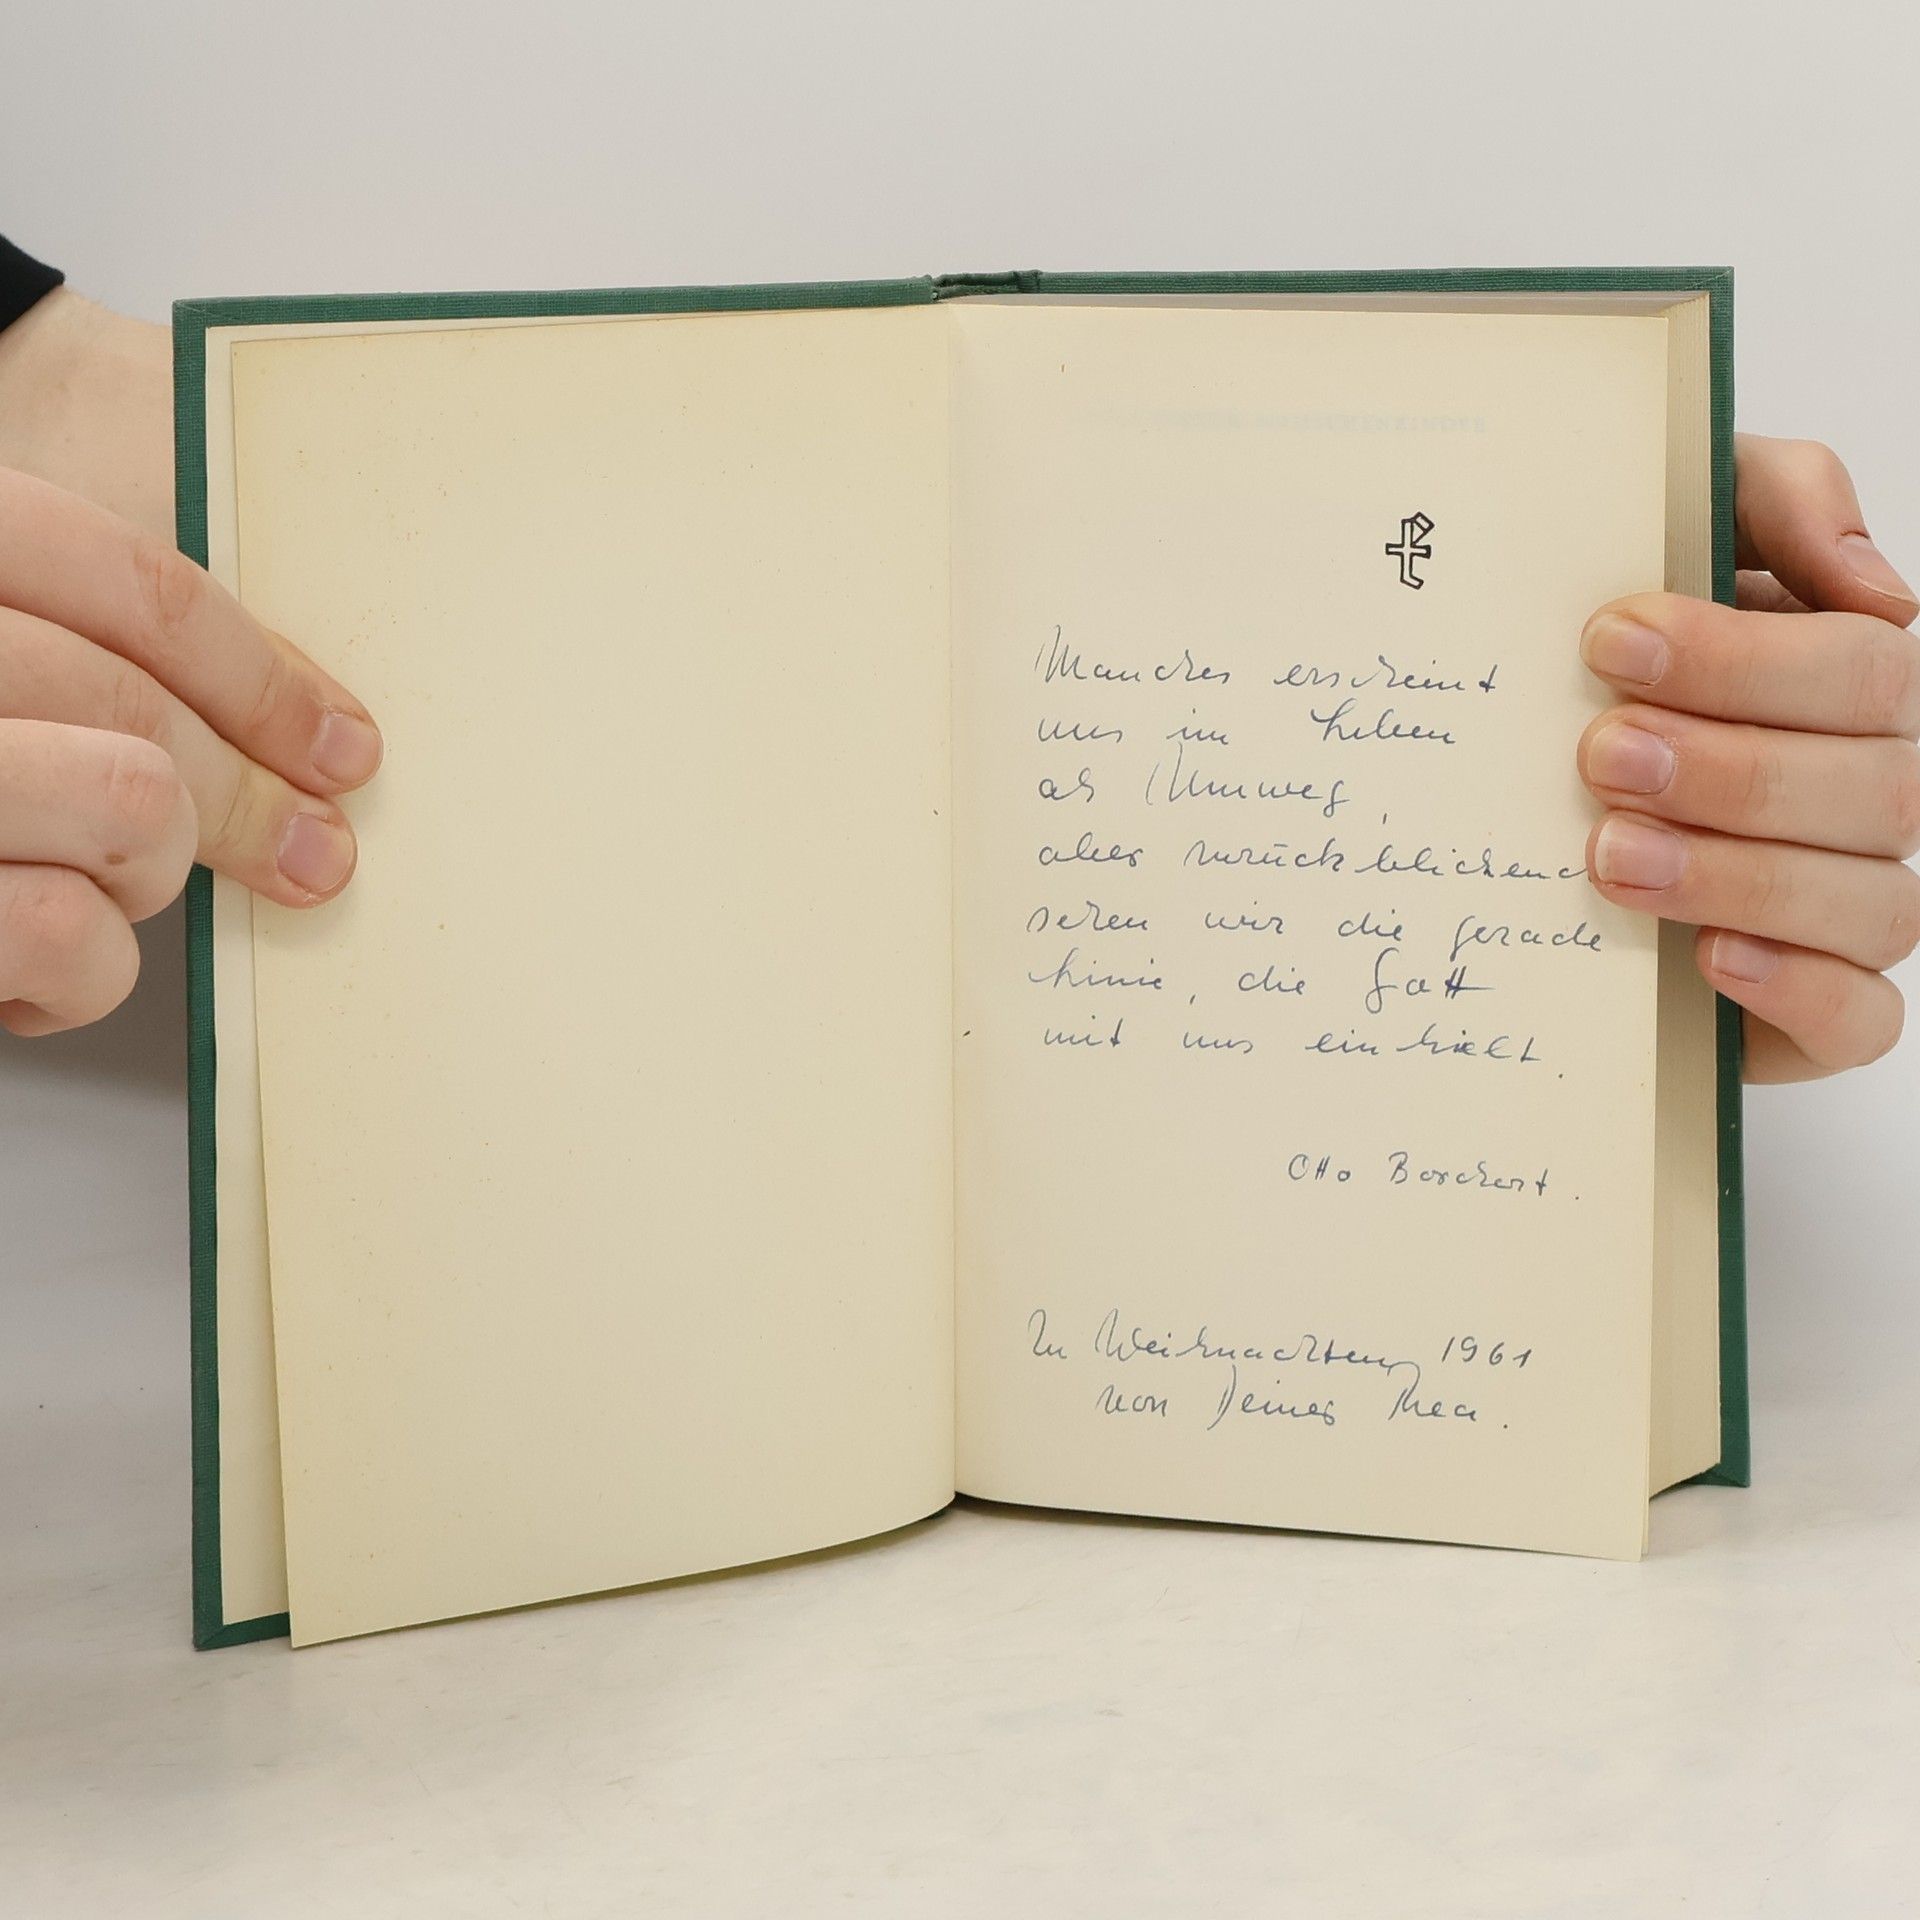 Manches erscheint
uns im Leben
als Umweg,
aber zurückblickend
sehen wir die gerade
Linie, die Gott
mit uns einhielt.
Otto Borchert.
Zu Weihnachten 1961
von Deiner Thea.